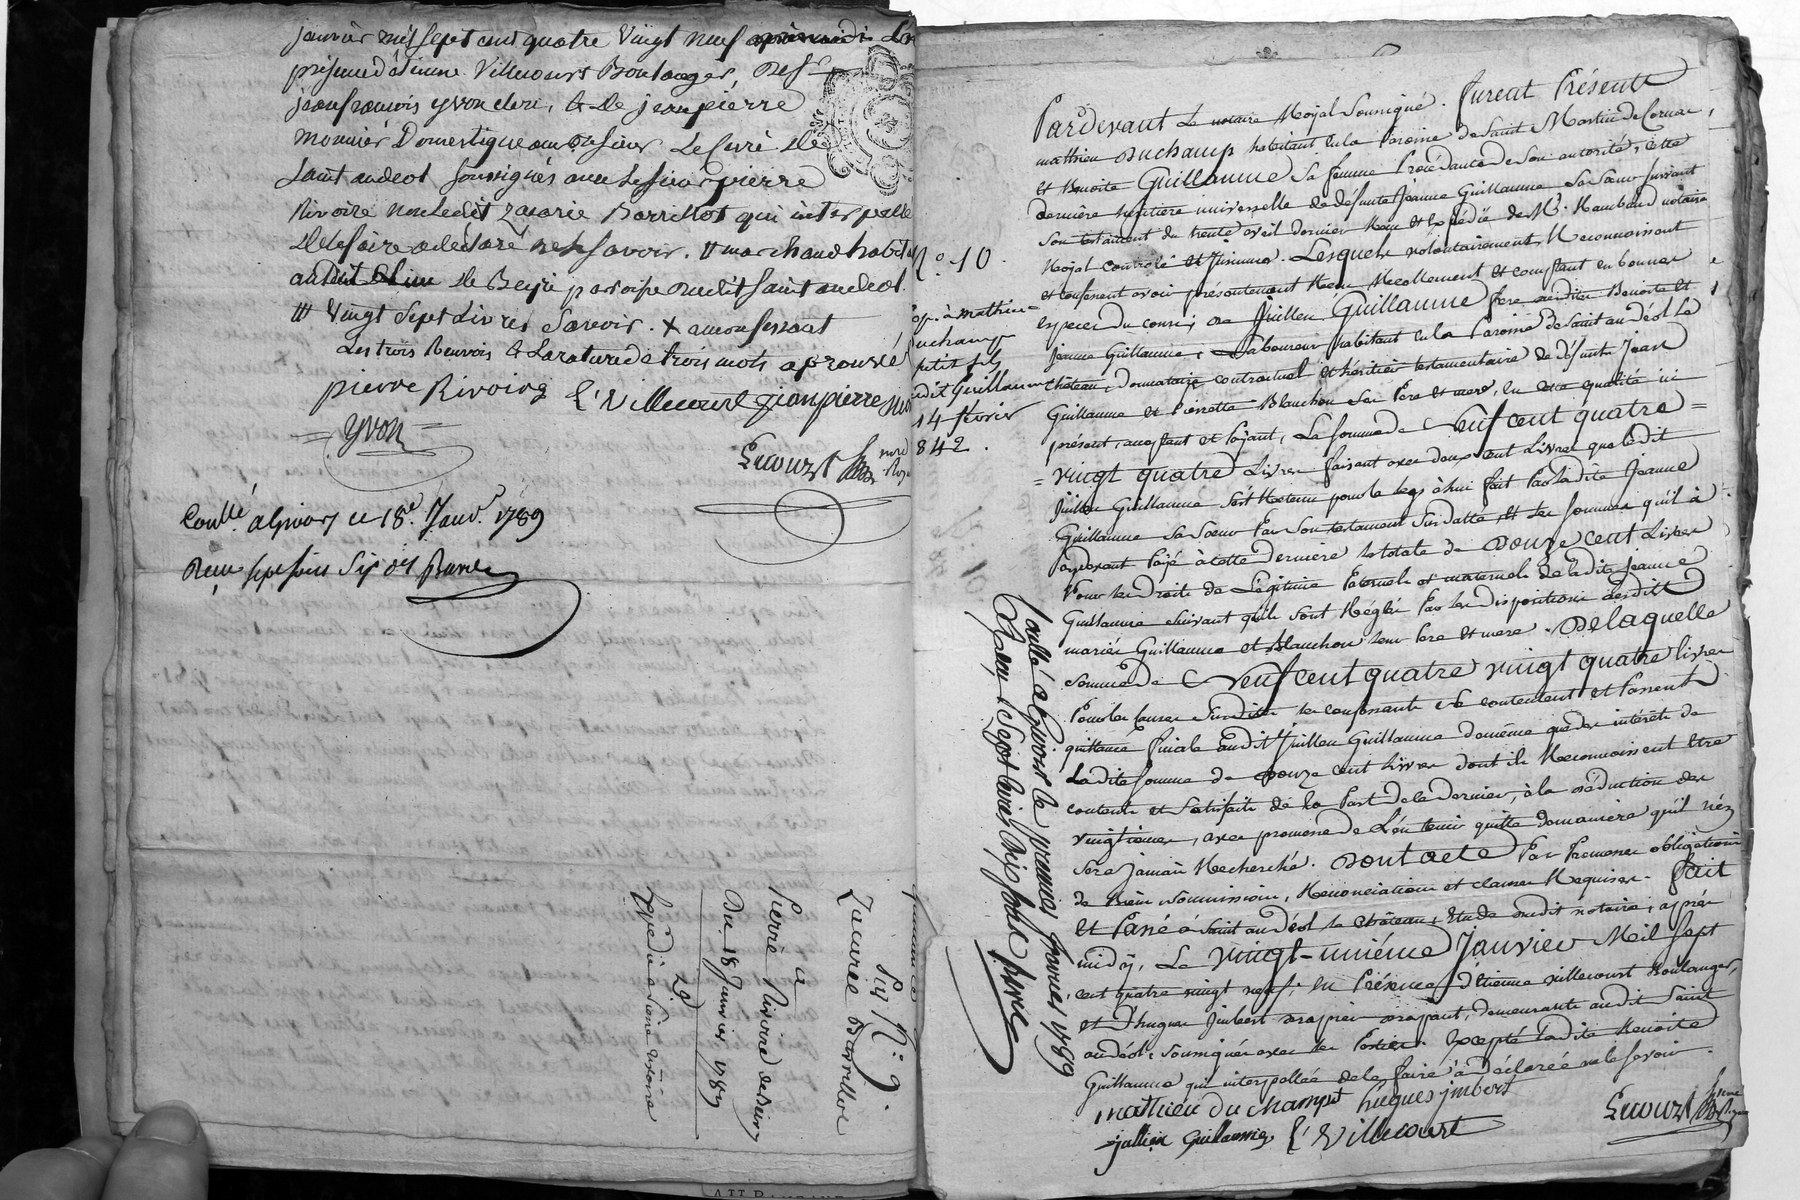 janvier mil sept cent quatre vingt neuf
présence d'Etienne Villecourt Boulanger,
jean francois yvon clerc, & de jean piérre
monnier Domestique Le Curé de
saint andeol soussignés avec le sieur pierre
Rivoire non ledit Zacarie Barrillot qui interpellé
de le faire a declaré ne le savoir. # marchand habit
audit lieu de paroisse dudit saint andeol.
vingt sept Livres savoir. +
Les trois Renvois & La rature de trois mots aprouvé
pierre Rivoire E. Villecourt jean pierre
yvon
Lucourt
Conllé a Givors ce 18e. Janv. 1789
Reçu
quittance
Sig N.° 9.
Zacarie Barrillot
a
Pierre Rivoire
Du 18 Janvier 1789
N.° 10
exp. à mathieu
Duchamp
petit fils
dudit Guillaume
14 février
1842.
Conllé a Givors le premier fevrier 1789
Reçu Sept Livres dix sols
Pardevant Le notaire Royal Soussigné. Furent Présents
mathieu Duchamp habitant en la Paroisse de Saint Martin de Cornas,
et Benoite Guillaume Sa femme Procédante de Son autorité, cette
derniere heritiere universelle de défunte Jeanne Guillaume Sa Soeur suivant
Son testament du trente avril dernier Recu et Expédié de Me. Raimbaud notaire
Royal controlé et Insinué. Lesquels volontairement, Reconnoissent
et confessent avoir présentement Recu Reellement et comptant en bonnes
especes du cours, de Jullien Guillaume frere desdites Benoite et
Jeanne Guillaume, Laboureur habitant en la Paroisse de Saint andéol le
Château, donnataire contractuel et héritier testamentaire de défunts Jean
Guillaume et Pierrette Blanchon Ses Pere et mere, en cette qualité ici
présent, acceptant et Payant, La Somme de Neuf cent quatre =
= vingt quatre Livres faisant avec deux cent Livres que ledit
Jullien Guillaume Sest Retenu pour le legs à lui fait Par ladite Jeanne
Guillaume Sa Soeur Par Son testament Sus datté, et les Sommes qu'il à
cy devant Payé à cette derniere la totale de Douze cent Livres
Pour les droits de Légitime Paternels et maternels de ladite Jeanne
Guillaume Suivant qu'ils Sont Réglés Par les dispositions desdits
mariés Guillaume et Blanchon leur Pere et mere. De laquelle
Somme de Neuf cent quatre vingt quatre livres
Pour les causes Susdites les confessants Se contentent et Passent
quittance finale audit Jullien Guillaume de même que des intérêts de
Ladite Somme de Douze cent Livres dont ils Reconnoissent être
contents et Satisfaits de la Part de ce dernier, à la déduction des
vingtiemes, avec promesse de L'en tenir quitte de maniere qu'il n'en
Sera Jamais Recherché. Dont acte Par Promesses obligations
de Biens Soumissions, Renonciations et clauses Requises. Fait
et Passé à Saint andéol le Château, Etude dudit notaire, après
midy, Le vingt-uniéme Janvier Mil Sept
cent quatre vingt neuf, en Présence d'Etienne villecourt Boulanger,
et d'hugues Jmbert drapier drapant, demeurants audit Saint
andéol, Soussignés avec les Parties. Excepté ladite Benoite
Guillaume qui interpellée de le faire à Déclarée ne le Savoir.
mathieu du champt hugues jmbert
jullien Guillaume E. Villecourt
Lucourt